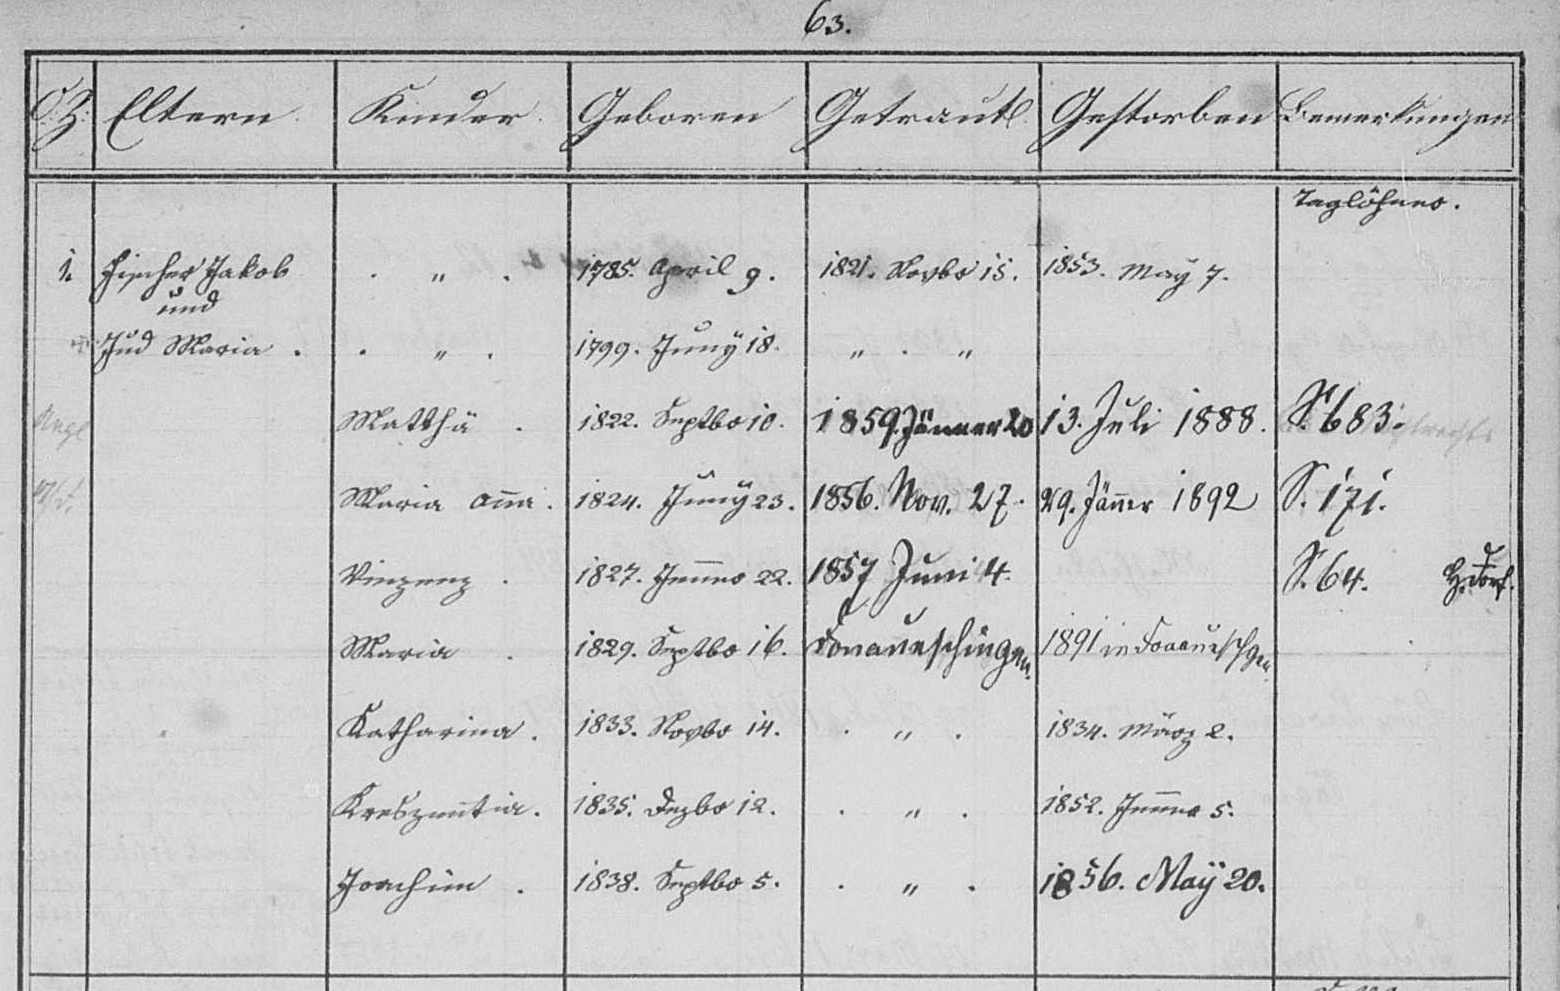 63.
O.Z. Eltern. Kinder. Geboren Getraut. Gestorben Bemerkungen
Taglöhner.
1. Fischer Jakob . „ . 1785. April 9. 1821. Novbr 15. 1853. May 7.
und
Jud Maria . . „ . 1799. Juny 18. „ . „
Matthä . 1822. Septbr 10. 1859. Jänner 20 13. Juli 1888. S. 683.
Maria Anna . 1824. Juny 23. 1856. Nov. 27. 29. Jänner 1892 S. 171.
Vinzenz . 1827. Jenner 22. 1857 Juni 4. S. 64.
Maria . 1829. Septbr 16. Donaueschingen. 1891 in
Katharina . 1833. Novbr 14. . „ . 1834. März 2.
Kreszentia . 1835. Dezbr 12. . „ . 1852. Jenner 5.
Joachim . 1838. Septbr 5. . „ . 1856. Maÿ 20.